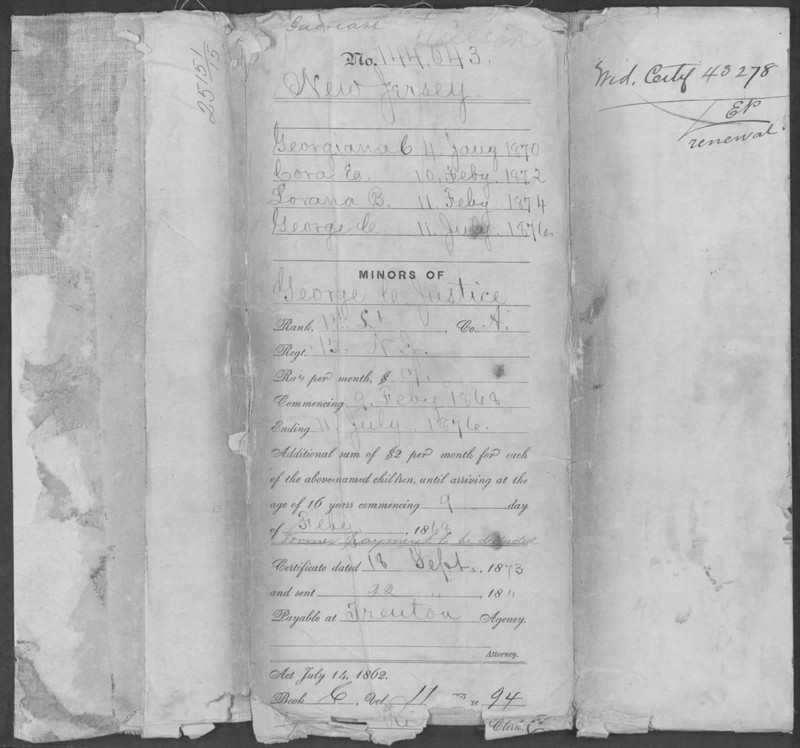 25151
15
Increase
No. 144,043.
New Jersey.
Georgiana C 11 Jany 1870
Cora E. 10, Feby. 1872
Lorana B. 11 Feby 1874
George C. 11, July 1876
MINORS OF
George C. Justice
Rank, 1st Lt, Co. A.
Regt. 15 N.J.
Rate per month, $ 17.
Commencing 9 Feby 1868
Ending 11 July 1876.
Additional sum of $2 per month for each
of the above-named children, until arriving at the
age of 16 years commencing 9 day
of Feby, 1868
Former payments to be deducted
Certificate dated 18 Sept., 1873
and sent 22 ", 18 "
Payable at Trenton Agency.
Attorney.
Act July 14, 1862.
Book C, Vol. 11 94
Clerk.
Wid. Certf 43278
EP
renewal.